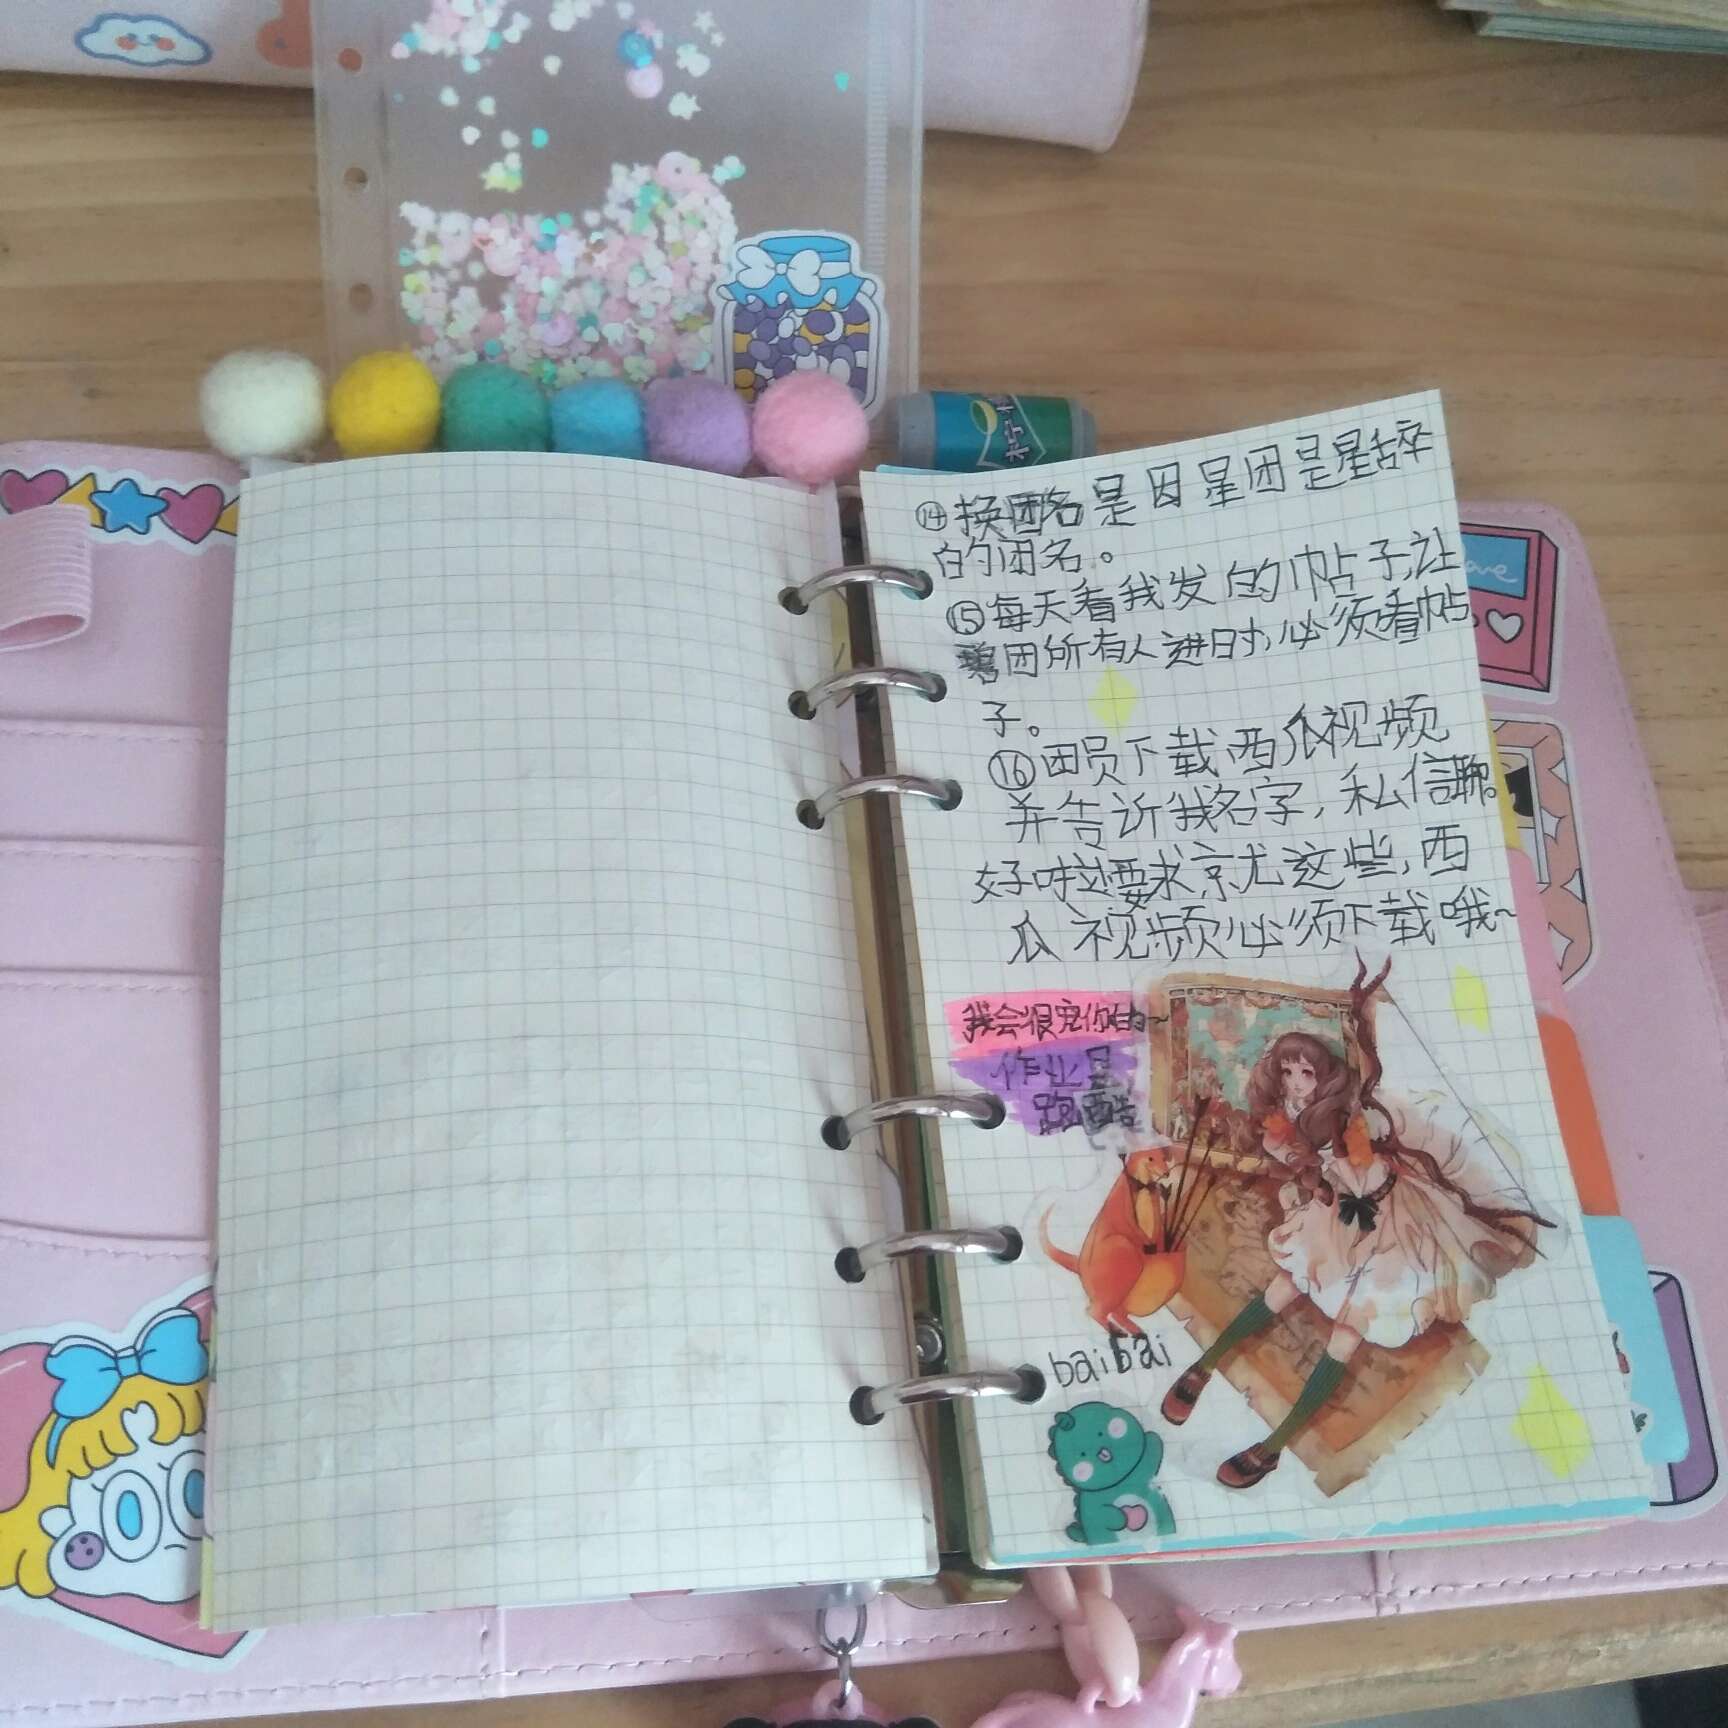 ⑭换团名是因星团是星辞
的团名。
⑮每天看我发的帖子,让
团所有人进时,必须看帖
子。
⑯团员下载西瓜视频
并告诉我名字，私信聊。
好啦要求就这些,西
瓜视频必须下载哦~
我会很宠你的~
作业是
跑酷
baibai